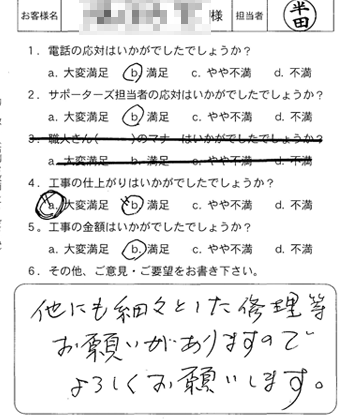 お客様名 様 担当者 半田
1．電話の応対はいかがでしたでしょうか？
a. 大変満足 b. 満足 c. やや不満 d. 不満
2．サポーターズ担当者の応対はいかがでしたでしょうか？
a. 大変満足 b. 満足 c. やや不満 d. 不満
3．職人さん（ ）のマナーはいかがでしたでしょうか？
a. 大変満足 b. 満足 c. やや不満 d. 不満
4．工事の仕上がりはいかがでしたでしょうか？
a. 大変満足 b. 満足 c. やや不満 d. 不満
5．工事の金額はいかがでしたでしょうか？
a. 大変満足 b. 満足 c. やや不満 d. 不満
6．その他、ご意見・ご要望をお書き下さい。
他にも細々とした修理等
お願いがありますので
よろしくお願いします。